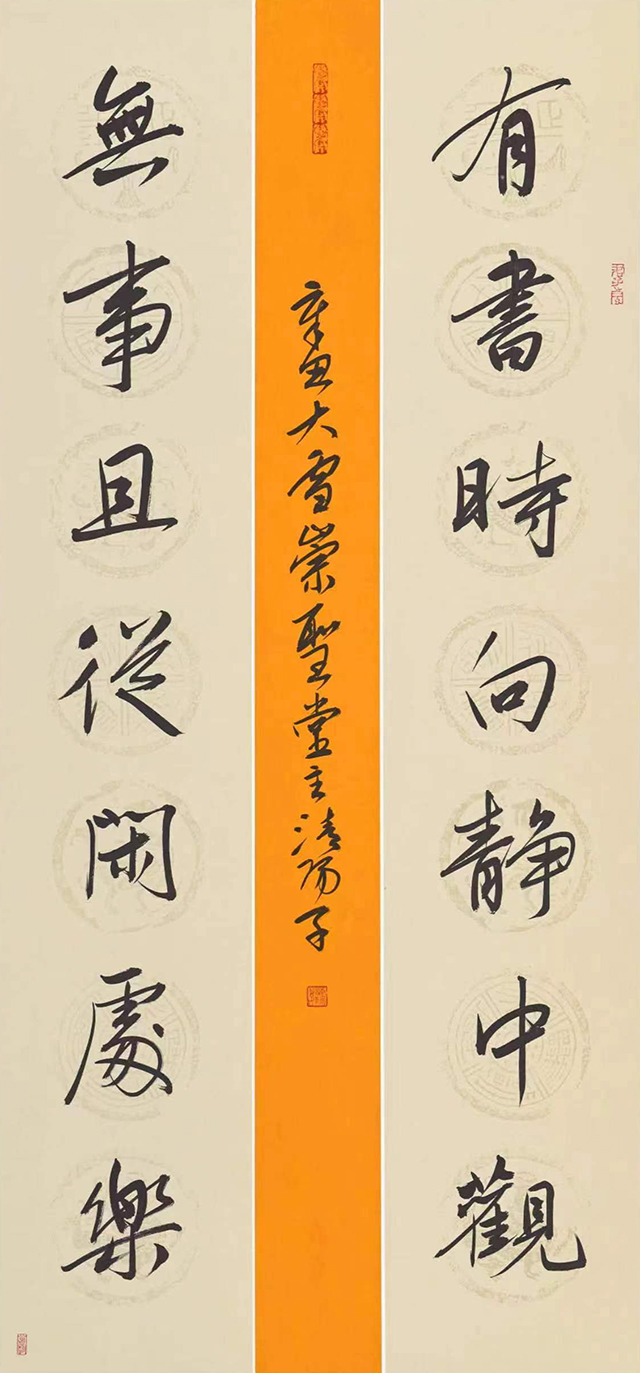 有書時向靜中觀
辛丑大雪崇聖堂主清陽子
無事且從閑處樂